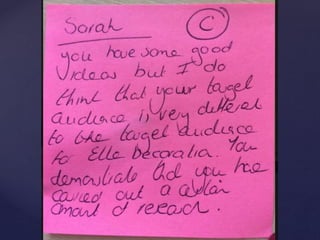 Sarah C
you have some good
ideas but I do
think that your target
audience is very different
to the target audience
for Elle Decoration. You
demonstrate that you have
carried out a certain
amount of research.